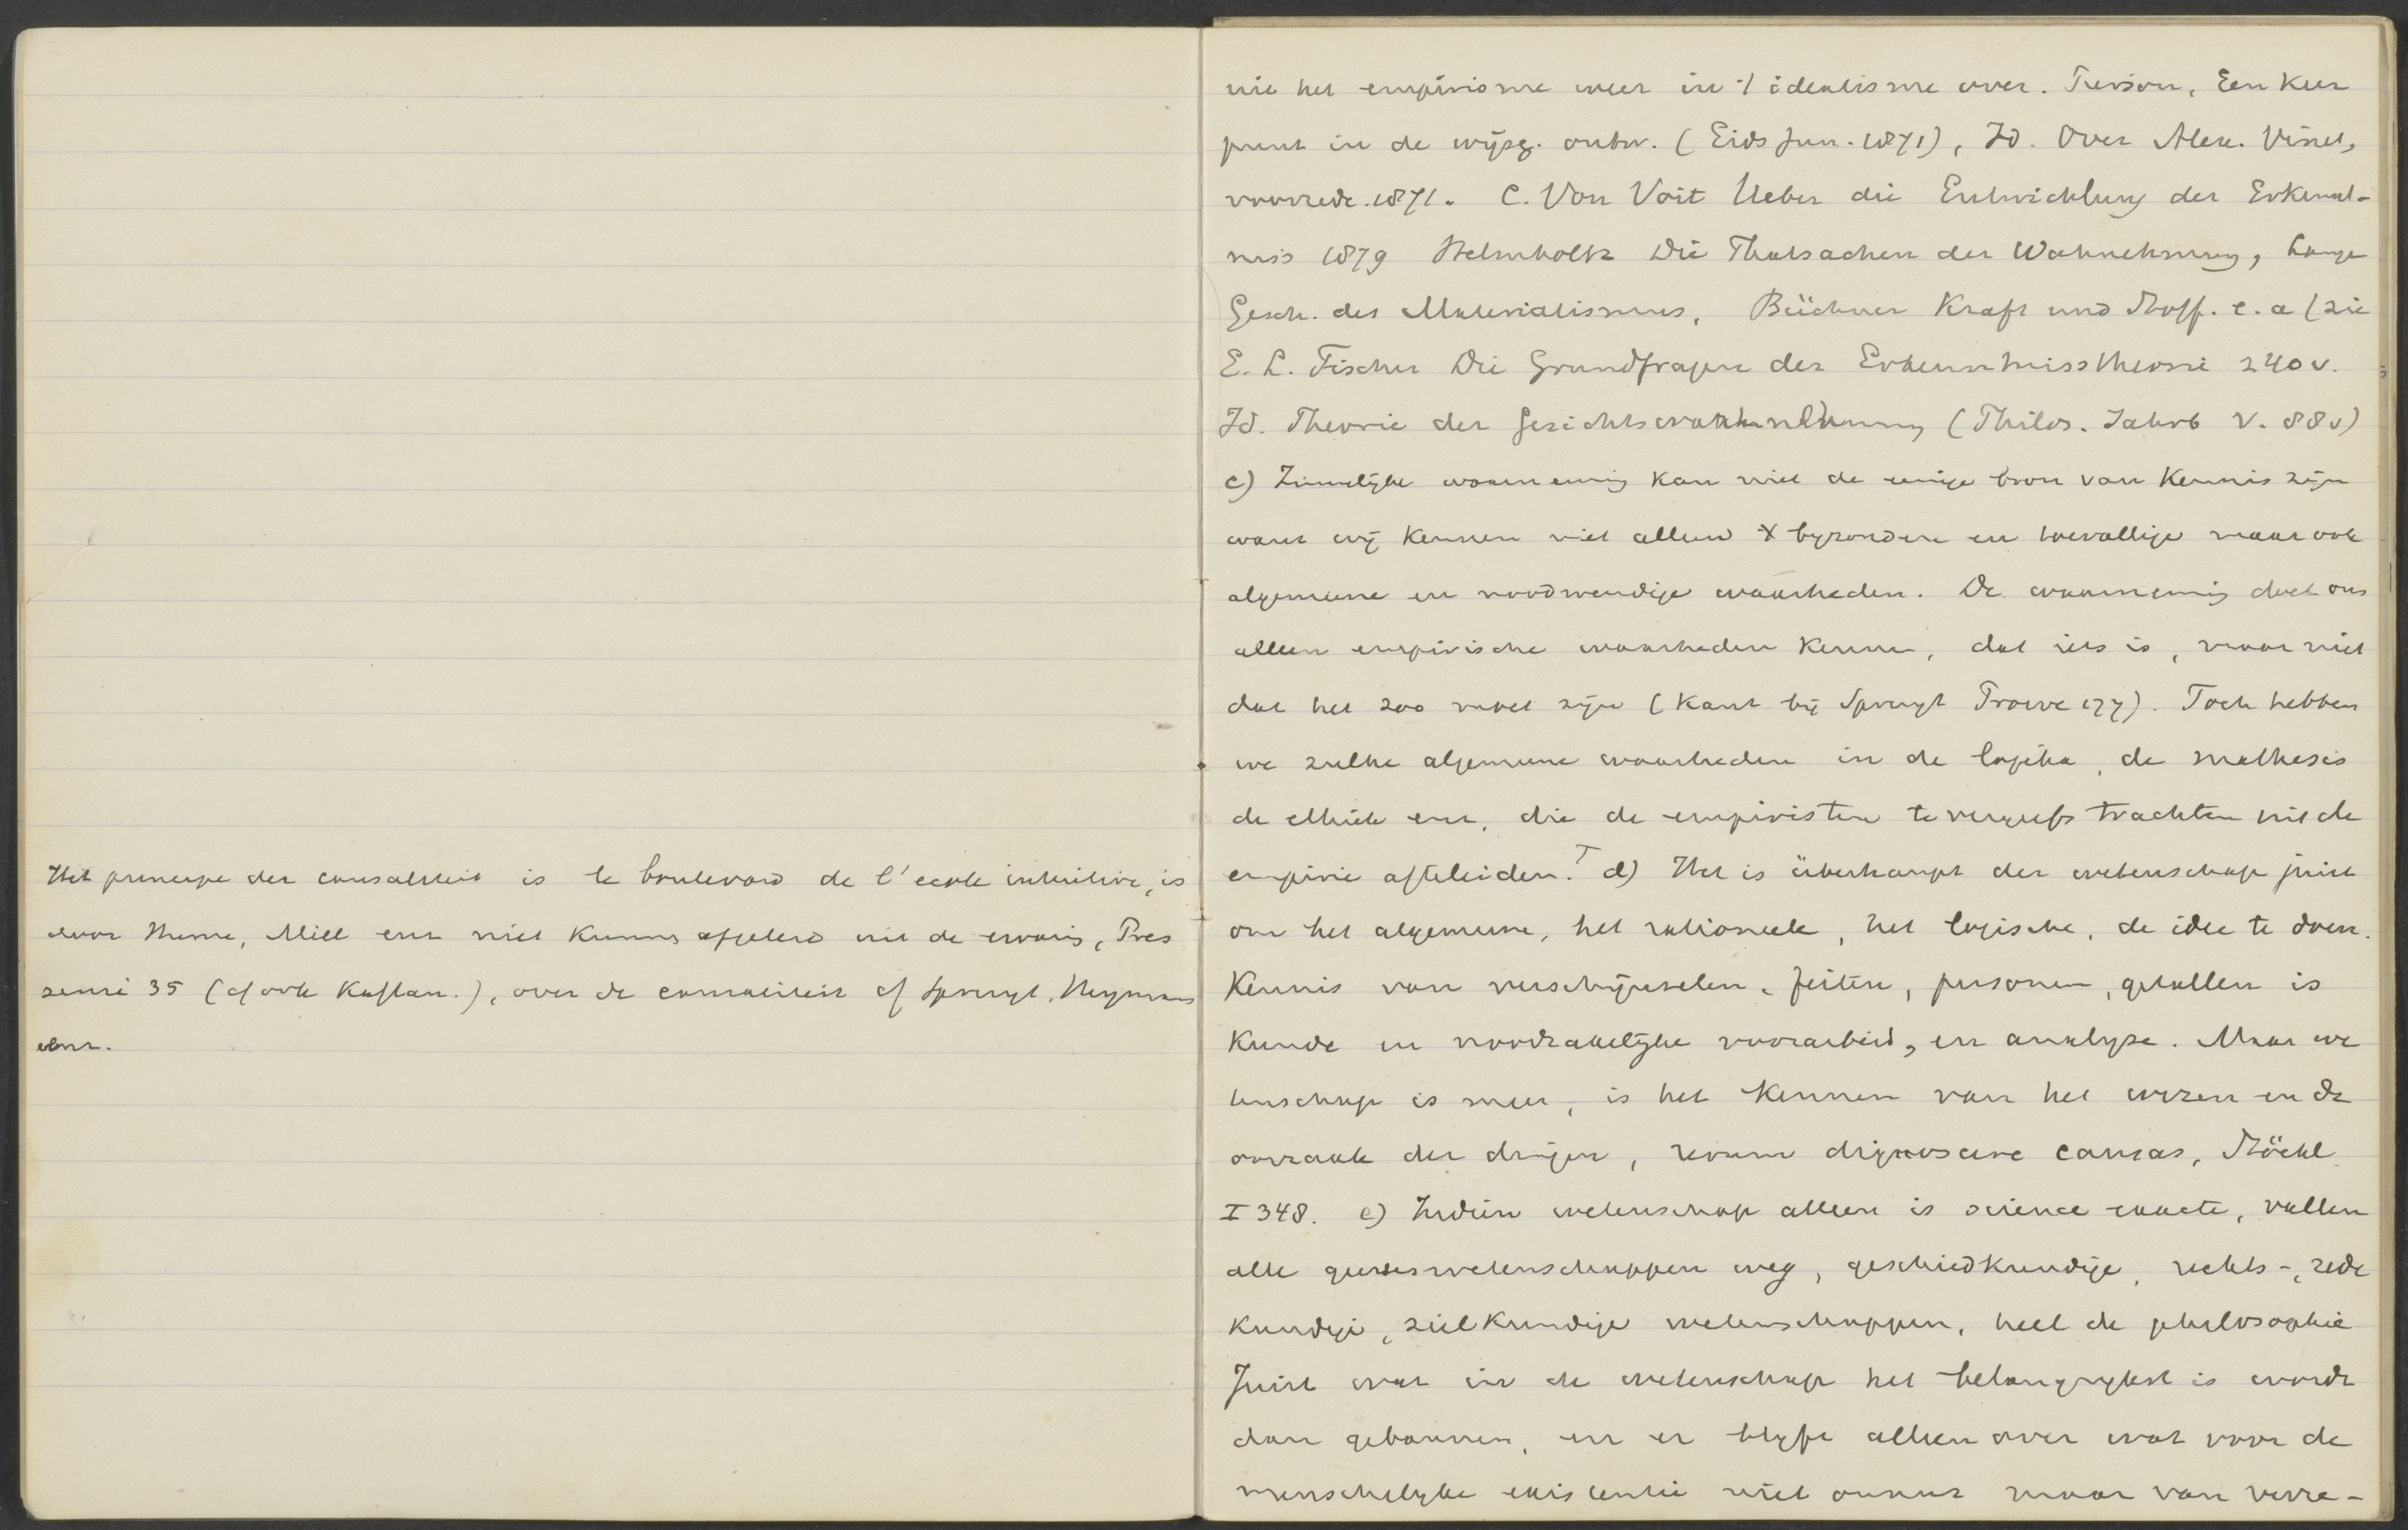 Het principe der causaliteit is le boulevard de l'ecole intuitive, is
door Hume, Mill enz niet kunnen afgeleid uit de ervaring, Pres
sensé 35 (cf ook Kaftan.), over de causaliteit cf Spruyt, Heymans
enz.
nie het empirisme weer in 't idealisme over. Pierson, Een Keer
punt in de wijsg. ontw. (Gids Jun. 1871), Id. Over Alex. Vinet,
voorrede 1871. C. Von Voit Ueber die Entwicklung der Erkennt-
nis 1879 Helmholtz Die Thatsachen der Wahrnehmung, Lange
Gesch. des Materialismus, Büchner Kraft und Stoff. e. a (zie
E. L. Fischer Die Grundfragen der Erkenntnisstheorie 240 v.
Id. Theorie der Gesichtswahrnehmung (Philos. Jahrb V. 88v)
c) Zinnelijke waarneming kan niet de eenige bron van Kennis zijn
want wij kennen niet alleen byzondere en toevallige maar ook
algemeene en noodwendige waarheden. De waarneming doet ons
alleen empirische waarheden kennen, dat iets is, maar niet
dat het zoo moet zijn (Kant bij Spruyt Proeve 177). Toch hebben
we zulke algemeene waarheden in de logika, de mathesis
de ethiek enz, die de empiristen te vergeefs trachten uit de
empirie afteleiden. T d) Het is überhaupt der wetenschap juist
om het algemeene, het rationeele, het logische, de idee te doen.
Kennis van verschijnselen, feiten, personen, getallen is
Kunde en noodzakelijke voorarbeid, en analyse. Maar we
tenschap is meer, is het Kennen van het wezen en de
oorzaak der dingen, rerum dignoscere causas, Stöckl
I 348. e) Indien wetenschap alleen is science exacte, vallen
alle geesteswetenschappen weg, geschiedkundige, rechts-, zede
kundige, zielkundige wetenschappen, heel de philosophie
Juist wat in de wetenschap het belangrijkst is wordt
dan gebannen, en er blyft alleen over wat voor de
menschelyke existentie niet onnut maar van verre-